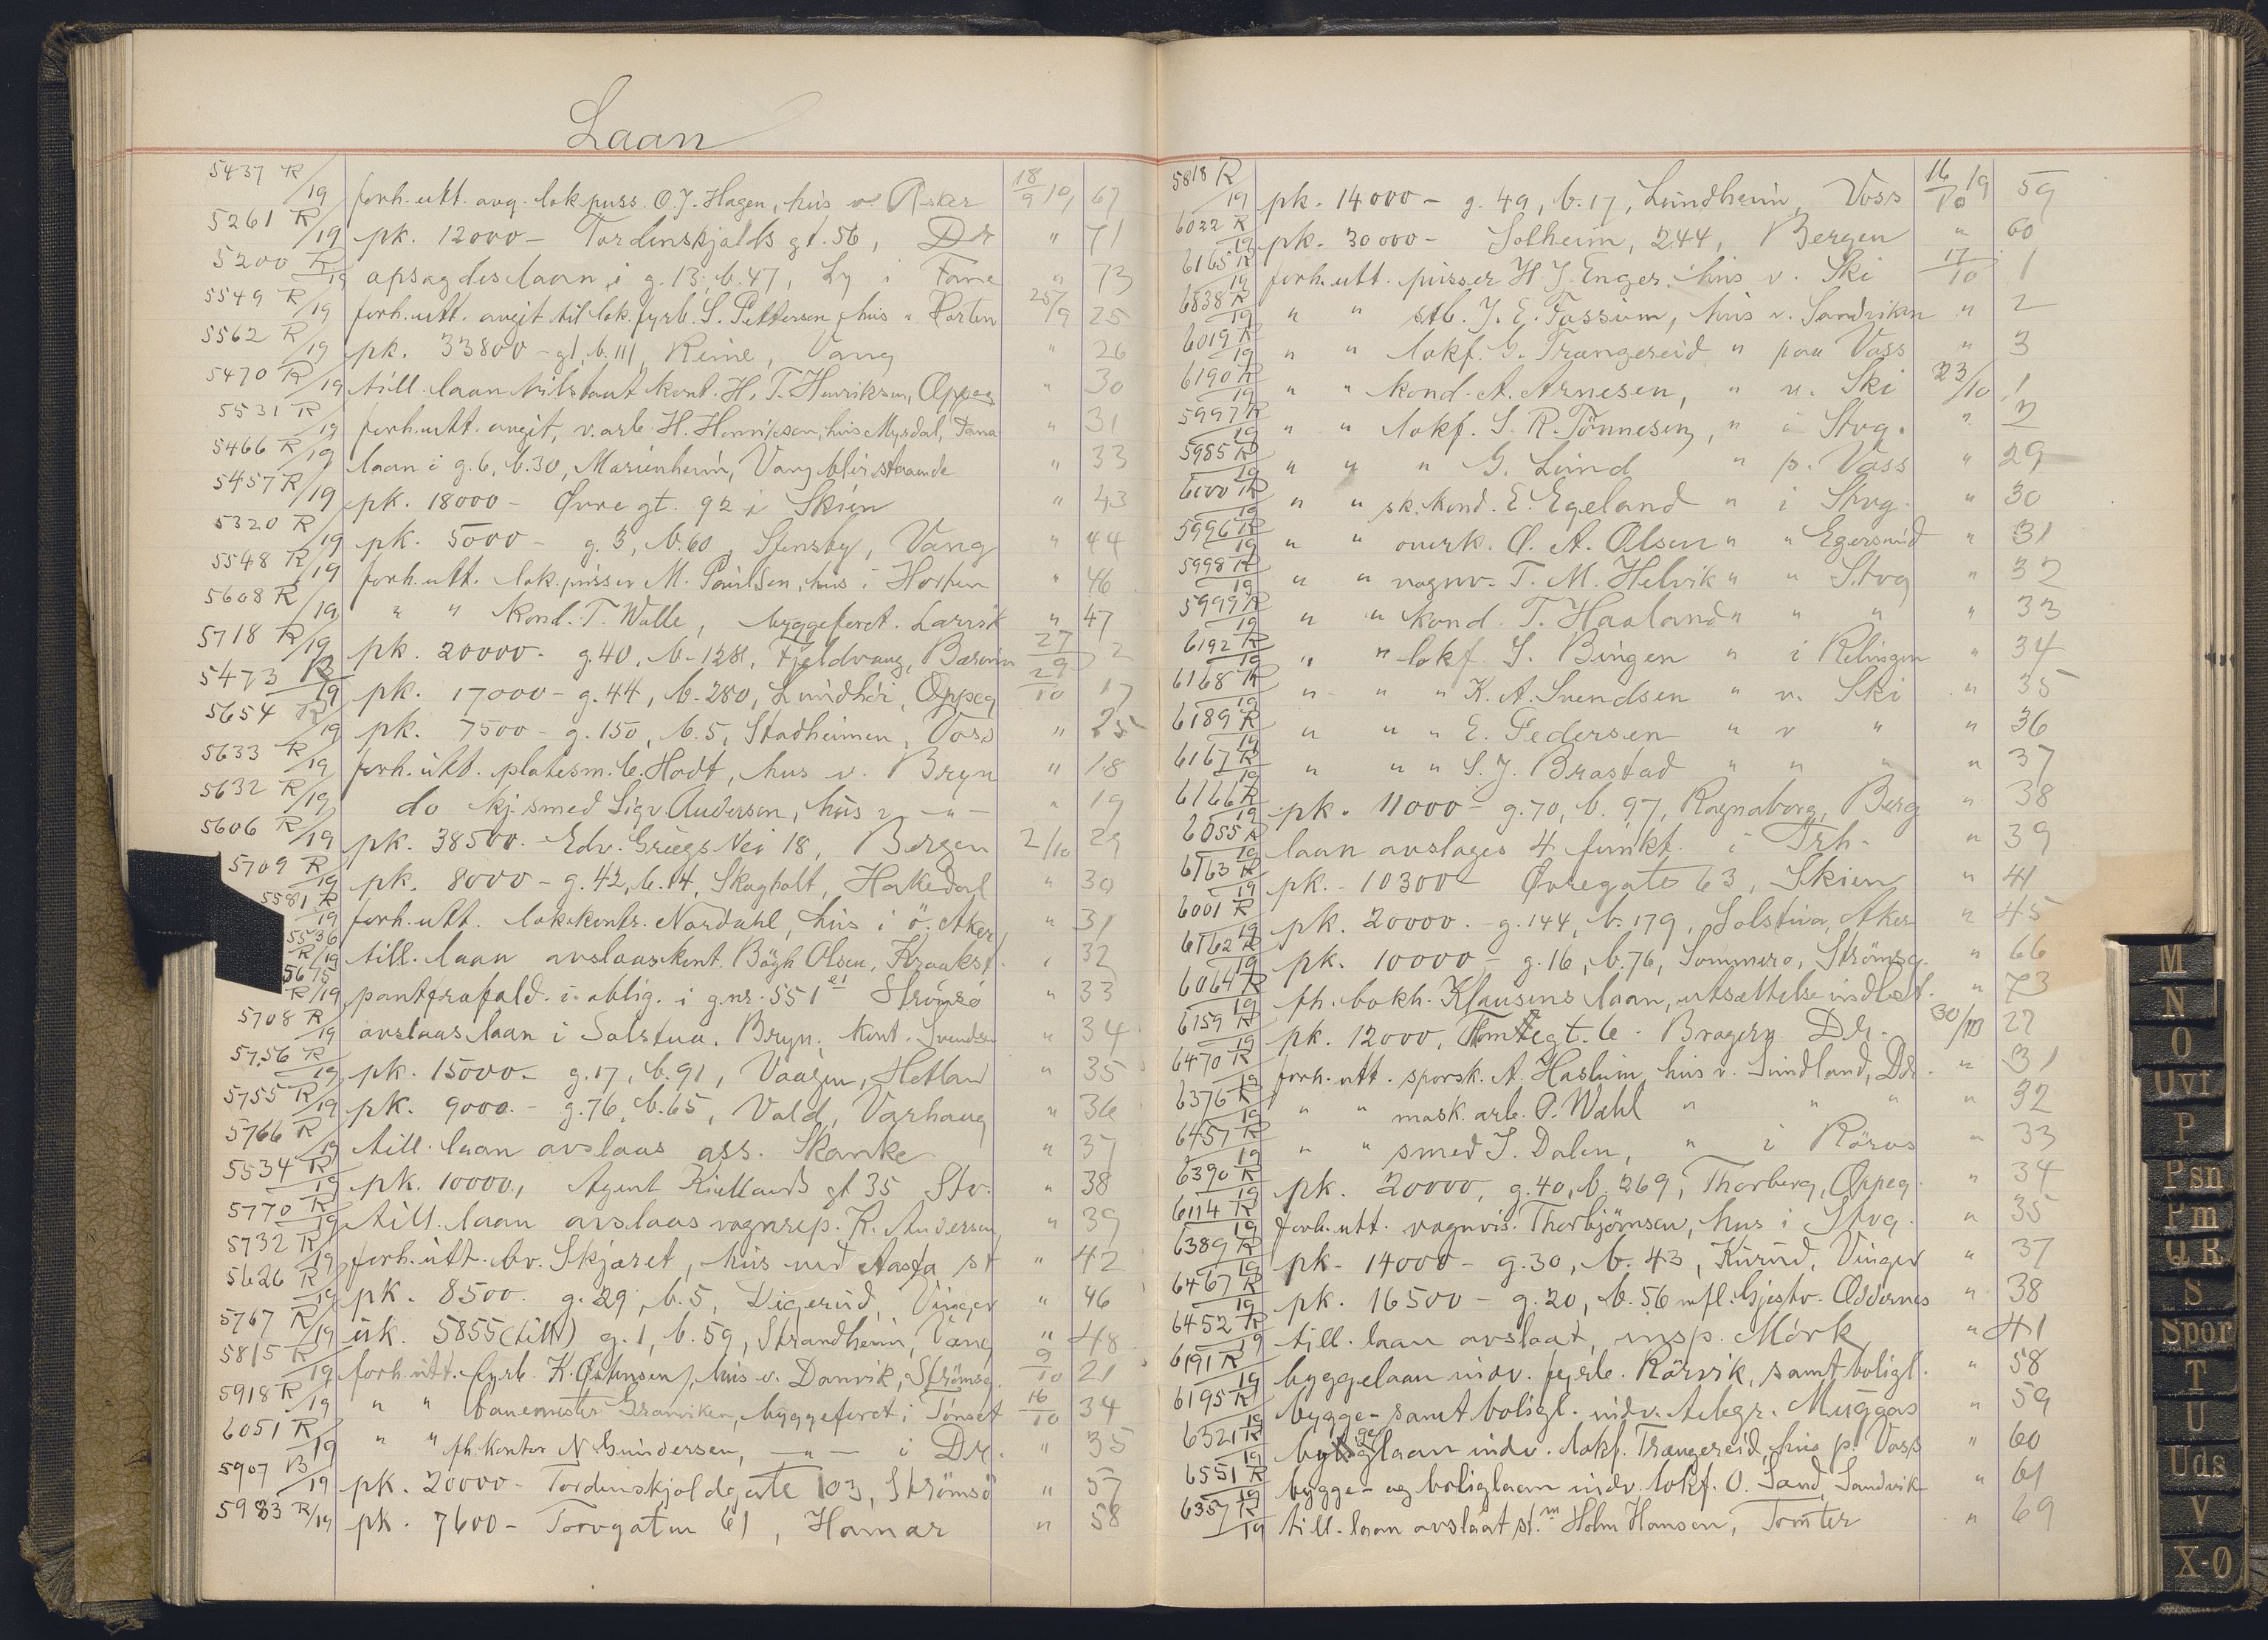 Laan
5437 R/19 forh. utt. avg. lok.puss. O.J. Hagen, hus v. Asker 18/9 19 67
5261 R/19 pk. 12000 - Tordenskjolds gt. 56, Dr " 71
5200 R/19 opsagdes laan i g. 13, b. 47, Ly i Fane " 73
5549 R/19 forh. utt. angit til lok.fyrb. S. Pettersen, hus v. Horten 25/9 25
5562 R/19 pk. 33800 - g1, b. 111, Vang " 26
5470 R/19 till. laan kont. H. T. Henriksen, Oppeg " 30
5531 R/19 forh. utt. angit, v. arb. H. Henriksen, hus Myrdal, Fana " 31
5466 R/19 laan i g. 6, b. 30, Marienheim, Vang blir staaende " 33
5457 R/19 pk. 18000 - Øvre gt. 92 i Skien " 43
5320 R/19 pk. 5000 - g. 3, b. 60, Stensby, Vang " 44
5548 R/19 forh. utt. lok.pusser M. Paulsen, hus i Horten " 46
5608 R/19 " " kond. T. Walle, byggeforet. Larvik " 47
5718 R/19 pk. 20000 - g. 40, b. 128, Fjeldvang, Bærum 27/9 2
5473 R/19 pk. 17000 - g. 44, b. 280, Lindhöi, Oppeg 29/10 17
5654 R/19 pk. 7500 - g. 150, b. 5, Stadheimen, Voss " 25
5633 R/19 forh. utt. platesm. C. Hodt, hus v. Bryn " 18
5632 R/19 do kj. smed Sigv Andersen, hus v - " - " 19
5606 R/19 pk. 38500 - Edv. Griegs Vei 18, Bergen 2/10 29
5709 R/19 pk. 8000 - g. 42, b. 14, Skogholt, Hakedal " 30
5581 R/19 forh. utt. lok.kontr. Nordahl, hus i ö. Aker " 31
5536 R/19 till. laan avslaas kont. Bögh Olsen, Kraakst. " 32
5675 R/19 pantefrafald. i oblig. i gnr. 551 e1 Strömsö " 33
5708 R/19 avslaas laan i Solstua, Bryn, kont. Svendsen " 34
5756 R/19 pk. 15000 - g. 17, b. 91, Vaagen, Hetland " 35
5755 R/19 pk. 9000 - g. 76, b. 65, Vold, Varhaug " 36
5766 R/19 till. laan avslaas ass. Skanke " 37
5534 R/19 pk. 10000, Agent Kiellands gt 35 Stv. " 38
5770 R/19 till. laan avslaas vognrep. K. Andersen " 39
5732 R/19 forh. utt. bv. Skjæret, hus ved Aasta st " 42
5626 R/19 pk. 8500 g. 29, b. 5, Digerud, Vinger " 46
5767 R/19 uk. 5855 (till) g. 1, b. 59, Strandheim, Vang " 48
5815 R/19 forh. utt. fyrb. K. Østensen, hus v. Danvik, Strömsg. 9/10 21
5918 R/19 " " banemester Granviken, byggeforet i Tönset 16/10 34
6051 R/19 " " fh. kontor N Gundersen, - " - i Dr. " 35
5907 R/19 pk. 20000 - Tordenskjoldsgate 103, Strömsö " 57
5983 R/19 pk. 7600 - Torvgaten 61, Hamar " 58
5818 R/19 pk. 14000 - g. 49, b. 17, Lundheim, Voss 16/10 19 59
6022 R/19 pk. 30000 - Solheim, 244, Bergen " 60
6165 R/19 forh. utt. pusser H. J. Enger, hus v. Ski 17/10 1
6838 R/19 " " stb. J. E. Fossum, hus v. Sandviken " 2
6019 R/19 " " lokf. G. Trangereid " paa Voss " 3
6190 R/19 " " kond. A. Arnesen, " v. Ski 23/10 1
5997 R/19 " " lokf. S. R. Tönnesen, " i Stvg. " 2
5985 R/19 " " " G. Lund " p. Voss " 29
6000 R/19 " " sk. kond. E. Egeland " i Stvg. " 30
5996 R/19 " " overk. O. A. Olsen " " Egersund " 31
5998 R/19 " " vognv. T. M. Helvik " " Stvg " 32
5999 R/19 " " kond. T. Haaland " " " " 33
6192 R/19 " " lokf. S. Bingen " i Relingen " 34
6168 R/19 " " " K. A. Svendsen " v. Ski " 35
6189 R/19 " " " E. Pedersen " v " " 36
6167 R/19 " " " S. J. Brastad " " " " 37
6166 R/19 pk. 11000 - g. 70, b. 97, Ragnaborg, Berg " 38
6055 R/19 laan avslages 4 funkt. i Trh. " 39
6163 R/19 pk. - 10300 - Øvregate 63, Skien " 41
6001 R/19 pk. 20000 - g. 144, b. 179, Solstua, Aker " 45
6162 R/19 pk. 10000 - g. 16, b. 76, Sommero, Strömsg. " 66
6064 R/19 fh. bokh. Klausens laan, utsættelse indbet. " 73
6159 R/19 pk. 12000, Tomtegt. 6 - Bragern. Dr. 30/10 27
6470 R/19 forh. utt. sporsk. A. Haslum, hus v. Sundland, Dr. " 31
6376 R/19 " " mask. arb. O. Wahl " " " " 32
6457 R/19 " " smed J. Dalen, " i Röros " 33
6390 R/19 pk. 20000, g. 40, b. 269, Thorberg, Oppeg. " 34
6114 R/19 forh. utt. vognvis. Thorbjörnsen, hus i Stvg. " 35
6389 R/19 pk - 14000 - g. 30, b. 43, Kurud, Vinger " 37
6467 R/19 pk. 16500 - g. 20, b. 56 mfl. Gjestv. Oddernes " 38
6452 R/19 till. laan avslaat, insp. Mörk " 41
6191 R/19 byggelaan indv. fyrb. Rörvik, samt boligl. " 58
6195 R/19 bygge - samt boligl. indv. telegr. Muggas " 59
6321 R/19 byggelaan indv. lokf. Trangereid, hus p. Voss " 60
6551 R/19 bygge - og boliglaan indv. lokf. O. Sand, Sandvik " 61
6357 R/19 till. laan avslaat st.m Holm Hansen, Tomter " 69
M
N
O
Ovf
P
Psn
Pm
Q R
S
Spor
T
U
Uds
V
X-Ø